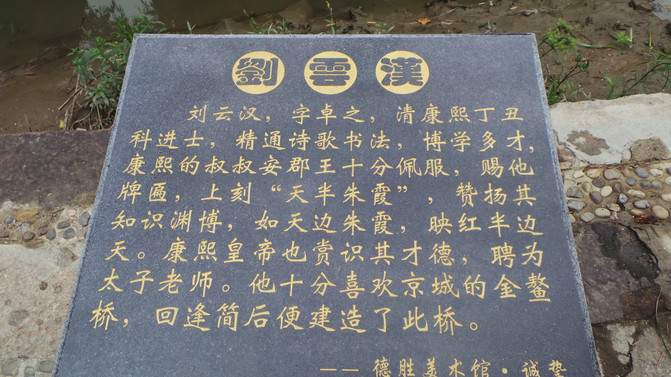 劉雲漢
刘云汉，字卓之，清康熙丁丑
科进士，精通诗歌书法，博学多才，
康熙的叔叔安郡王十分佩服，赐他
牌匾，上刻“天半朱霞”，赞扬其
知识渊博，如天边朱霞，映红半边
天。康熙皇帝也赏识其才德，聘为
太子老师。他十分喜欢京城的金鳌
桥，回逢简后便建造了此桥。
——德胜美术馆·诚挚